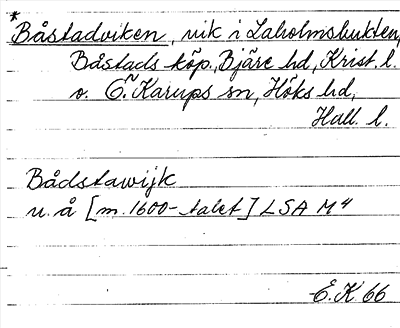 * Båstadviken, vik i Laholmsbukten,
Båstads köp., Bjäre hd, Krist. l.
o. Ö. Karups sn, Höks hd,
Hall. l.
Bådstawijk
u. å [m. 1600-talet] LSA M 4
E.K 66